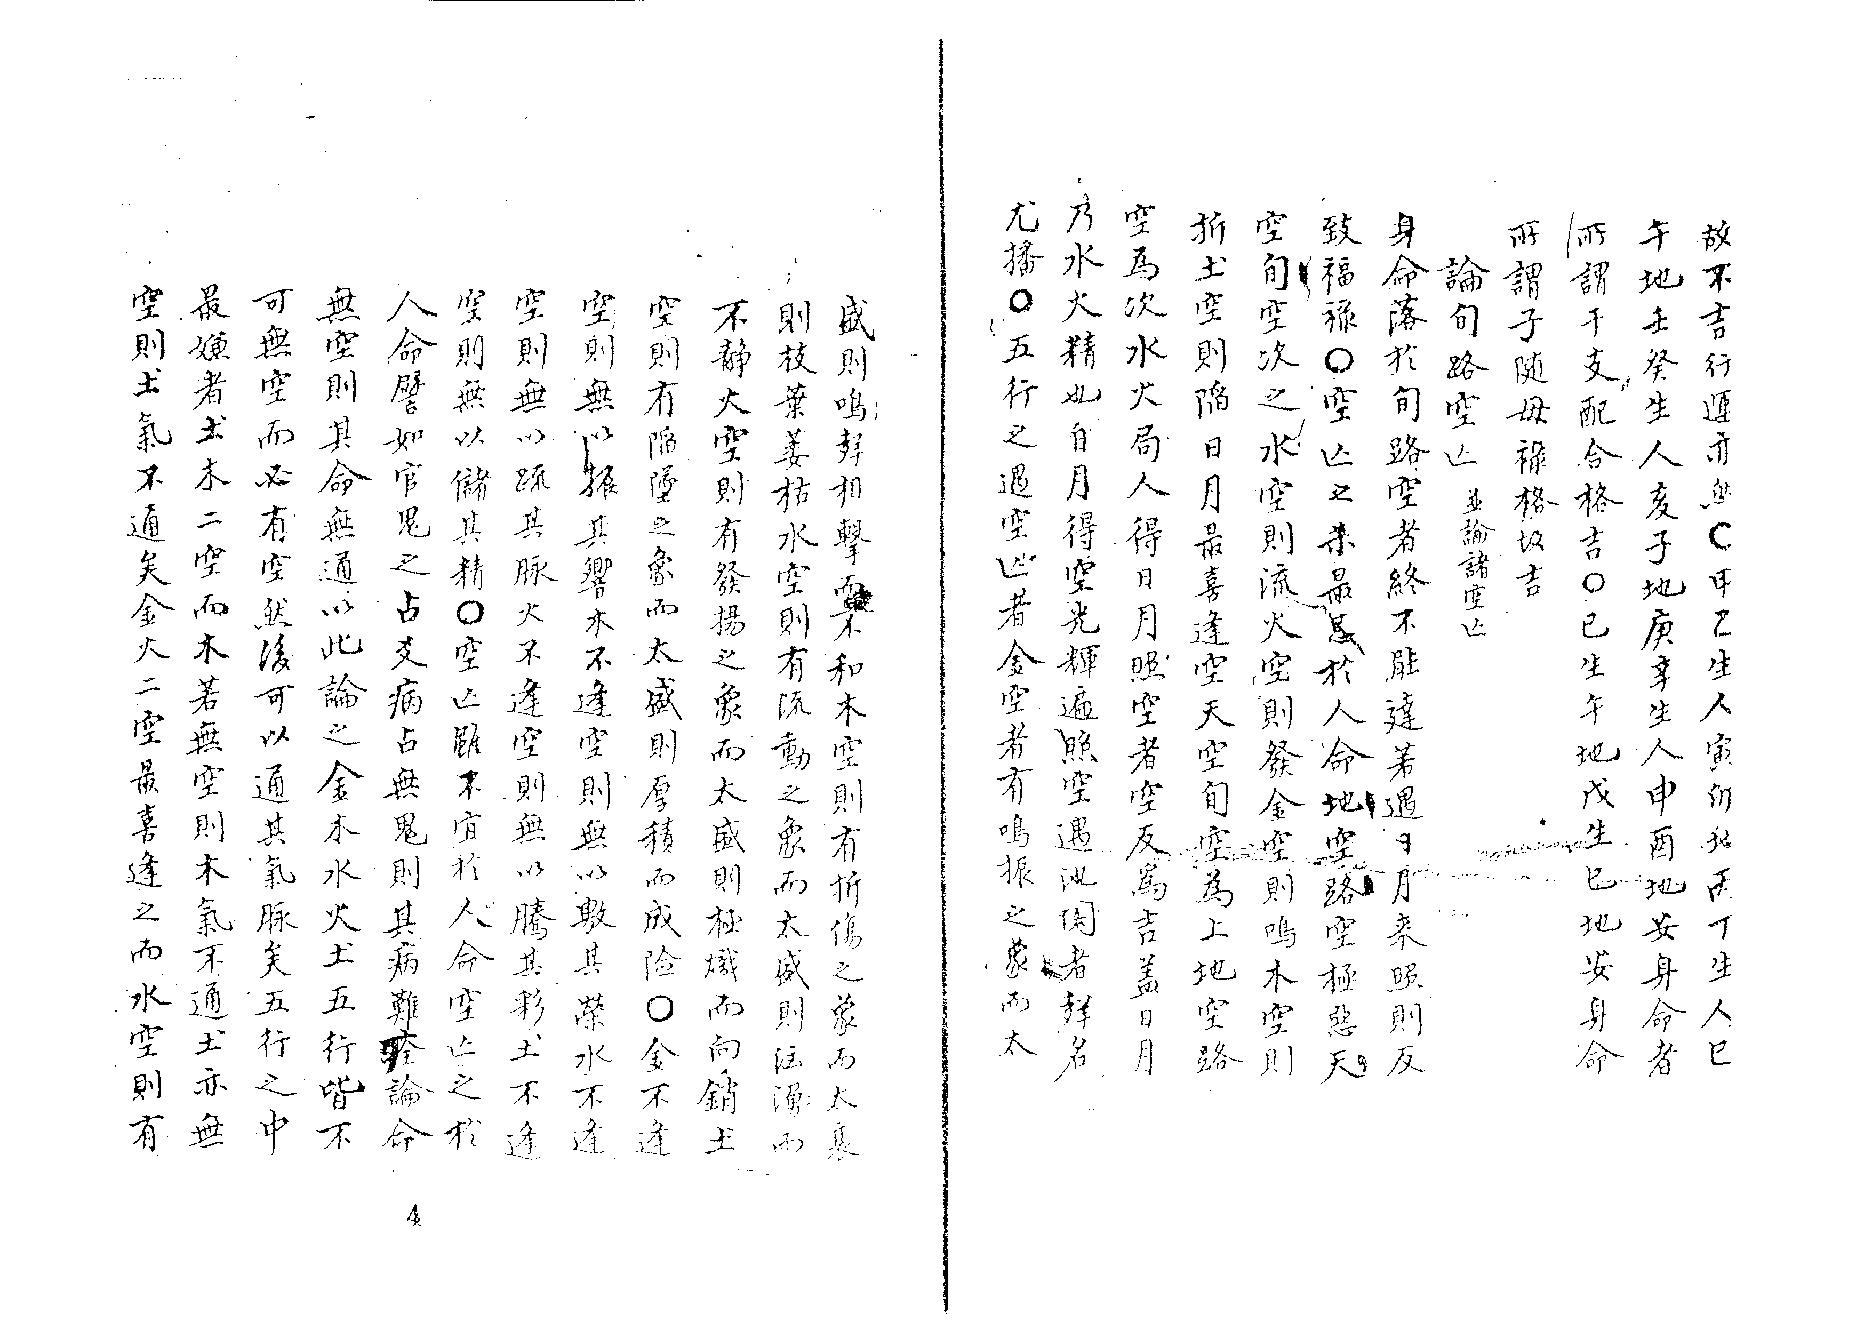 故不吉行運亦然〇甲乙生人寅卯地丙丁生人巳
午地壬癸生人亥子地庚辛生人申酉地安身命者
所謂干支配合格吉〇己生午地戊生巳地安身命
所謂子随母祿格坂吉
論旬路空亡 並論諸空亡
身命落於旬路空者終不能達若遇日月来照則反
致福祿〇空亡之朱最忌於人命地空路空極惡天
空旬空次之水空則流火空則發金空則鳴木空則
折土空則陷日月最喜逢空天空旬空為上地空路
空為次水火局人得日月照空者空反為吉盖日月
乃水火精也自月得空光輝遍照空遇池関者群名
尤播〇五行之遇空亡者金空者有鳴振之象而太
盛則鳴群相擊而不和木空則有折傷之象而太衰
則枝葉萎枯水空則有流動之象而太盛則汪湧而
不靜火空則有發揚之象而太盛則極熾而向銷土
空則有陷墮之象而太盛則厚積而成险〇金不逢
空則無以振其響木不逢空則無以敷其榮水不逢
空則無以疏其脉火不逢空則無以騰其彩土不逢
空則無以儲其精〇空亡雖不宜於人命空亡之於
人命譬如官鬼之占爻病占無鬼則其病難痊論命
無空則其命無通以此論之金木水火土五行皆不
可無空而必有空然後可以通其氣脉矣五行之中
最嫌者土木二空而木若無空則木氣不通土亦無
空則土氣不通矣金火二空最喜逢之而水空則有
4